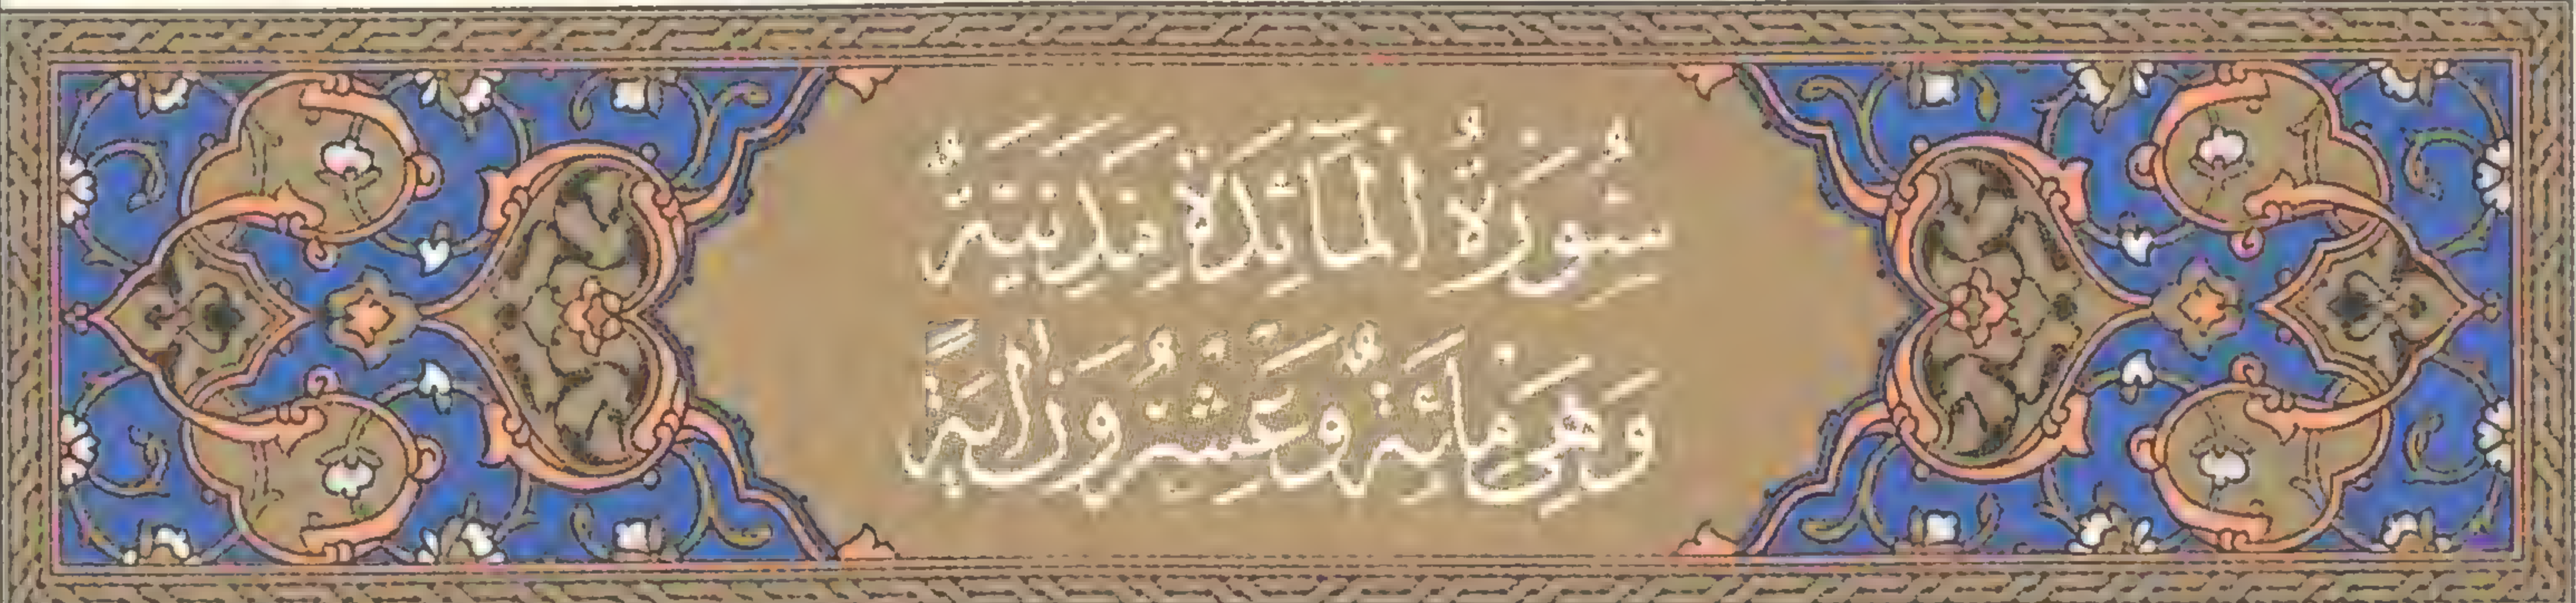 سُورَةُ الْمَائِدَةِ مَدَنِيَّةٌ
وَهِيَ مِائَةٌ وَعِشْرُونَ آيَةً